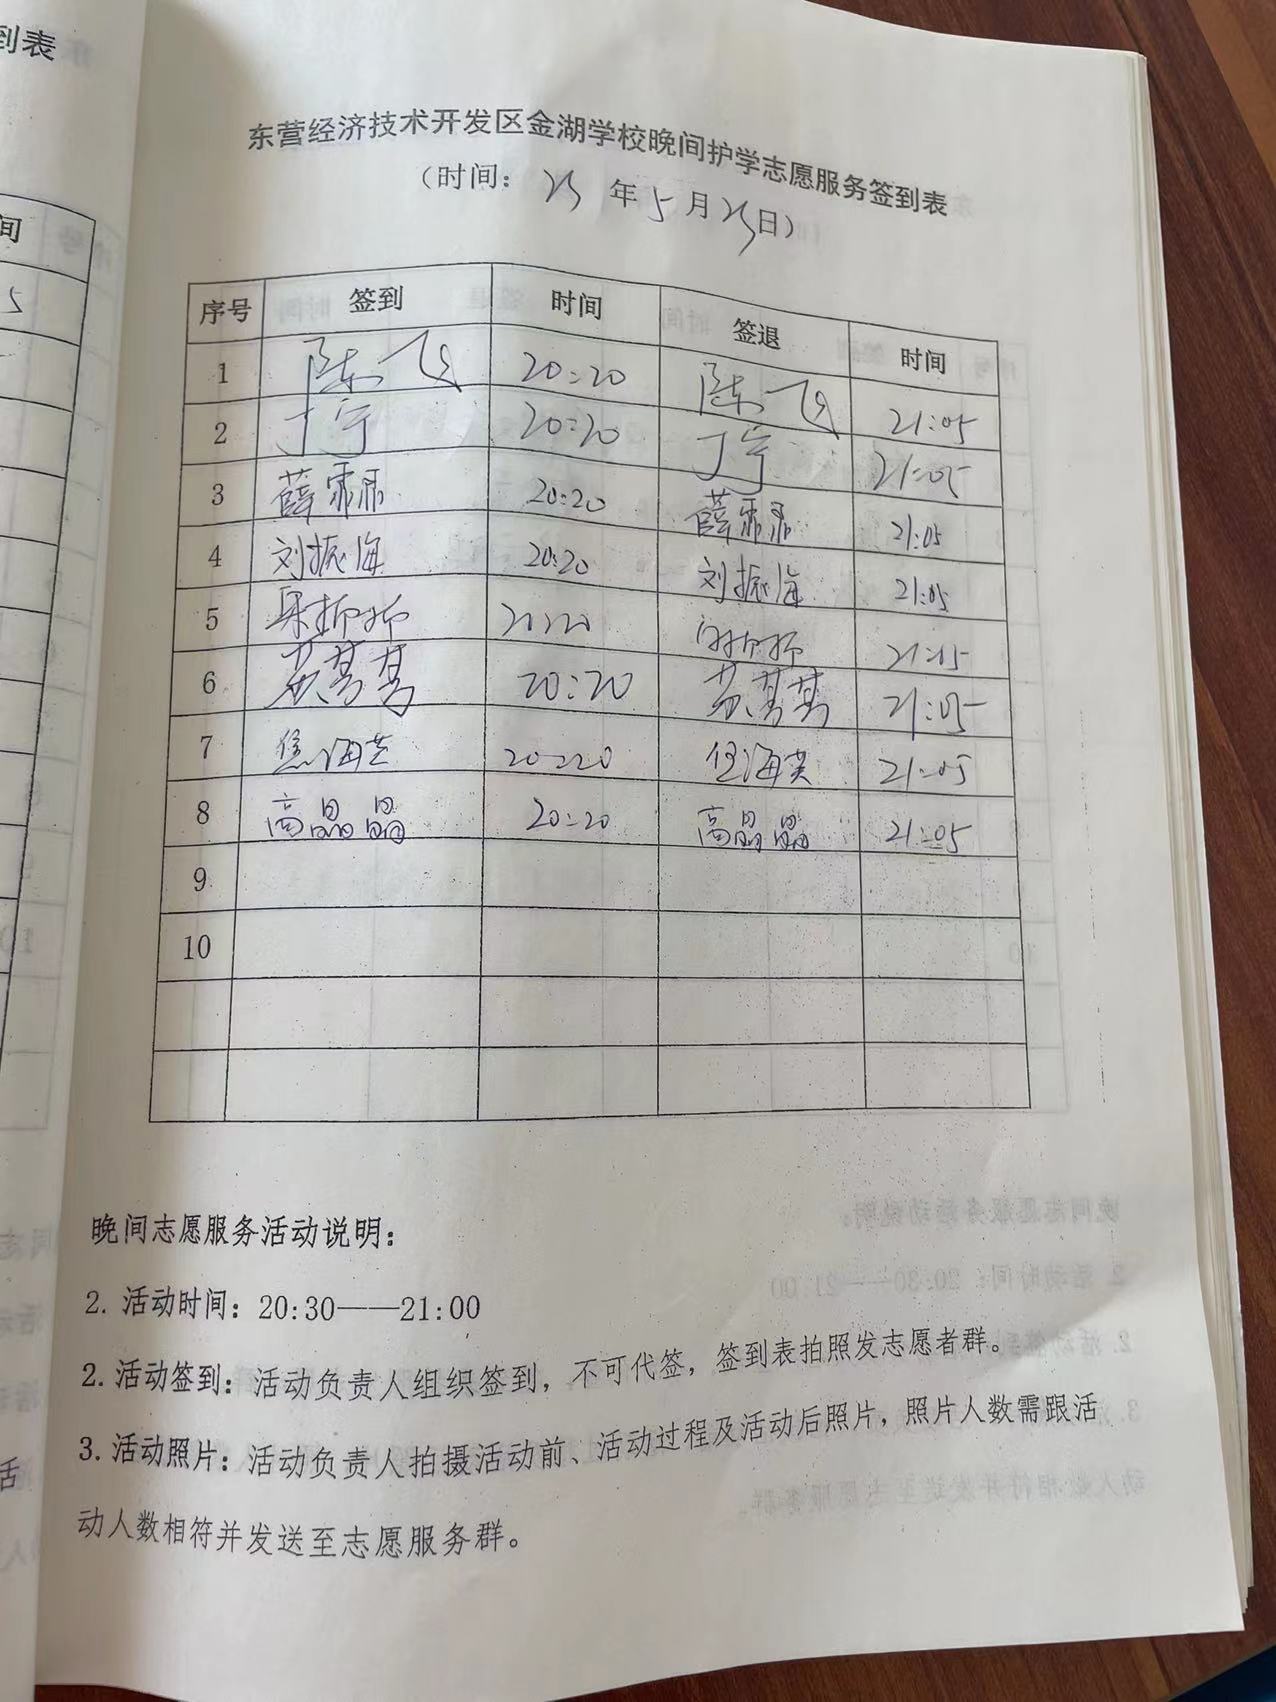 到表
间
5
活
东营经济技术开发区金湖学校晚间护学志愿服务签到表
（时间：23年5月23日）
序号 签到 时间 签退 时间
1 陈飞 20:20 陈飞 21:05
2 丁宁 20:20 丁宁 21:05
3 薛霏霏 20:20 薛霏霏 21:05
4 刘振海 20:20 刘振海 21:05
5 20:20 21:05
6 苏菁菁 20:20 苏菁菁 21:05
7 20:20 21:05
8 高晶晶 20:20 高晶晶 21:05
9
10
晚间志愿服务活动说明：
2. 活动时间：20:30——21:00
2. 活动签到：活动负责人组织签到，不可代签，签到表拍照发志愿者群。
3. 活动照片：活动负责人拍摄活动前、活动过程及活动后照片，照片人数需跟活
动人数相符并发送至志愿服务群。